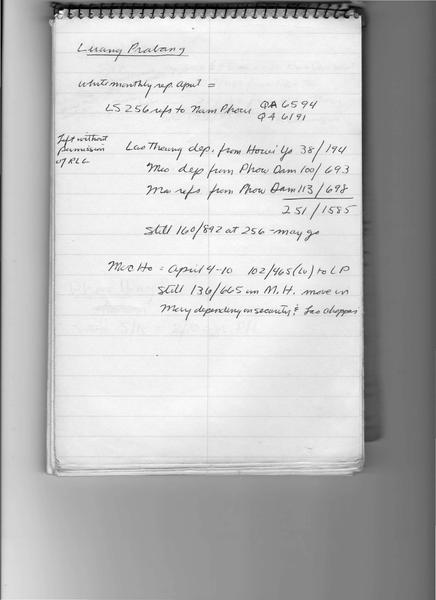 Luang Prabang
White monthly rep. April =
LS 256 refs to Nam Phoui QA 6594
QA 6191
Left without
permission
of RLG
Lao Theung dep. from Houei Yo 38/194
Meo dep from Phou Dam 100/693
Meo refs from Phou Dam 113/698
251/1585
Still 160/892 at 256 - may go
M. Ho = April 4-10 102/465 (Lu) to LP
Still 136/665 in M.H. move in
May depending on security & Lao chopper